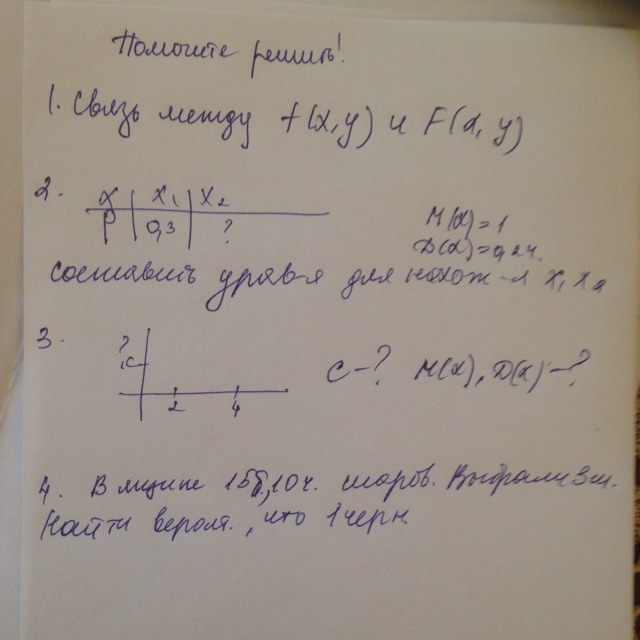 Помогите решить!
1. Связь между f(x,y) и F(x,y)
2.
X | x₁ | x₂
P | 0,3 | ?
M(X)=1
D(X)=0,24.
составить урав-я для нахож-я x₁ x₂
3.
?
c
2 4
C-? M(x), D(x)-?
4. В ящике 15б, 10ч. шаров. Выбрали 3ш.
Найти вероят., что 1 черн.